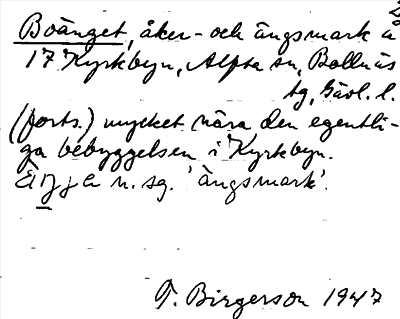 2)
Boänget, åker- och ängsmark å
17 Kyrkbyn, Alfta sn, Bollnäs
tg, Gävl. l.
(forts.) mycket nära den egentli-
ga bebyggelsen i Kyrkbyn.
n. sg. 'ängsmark'.
T. Birgerson 1947